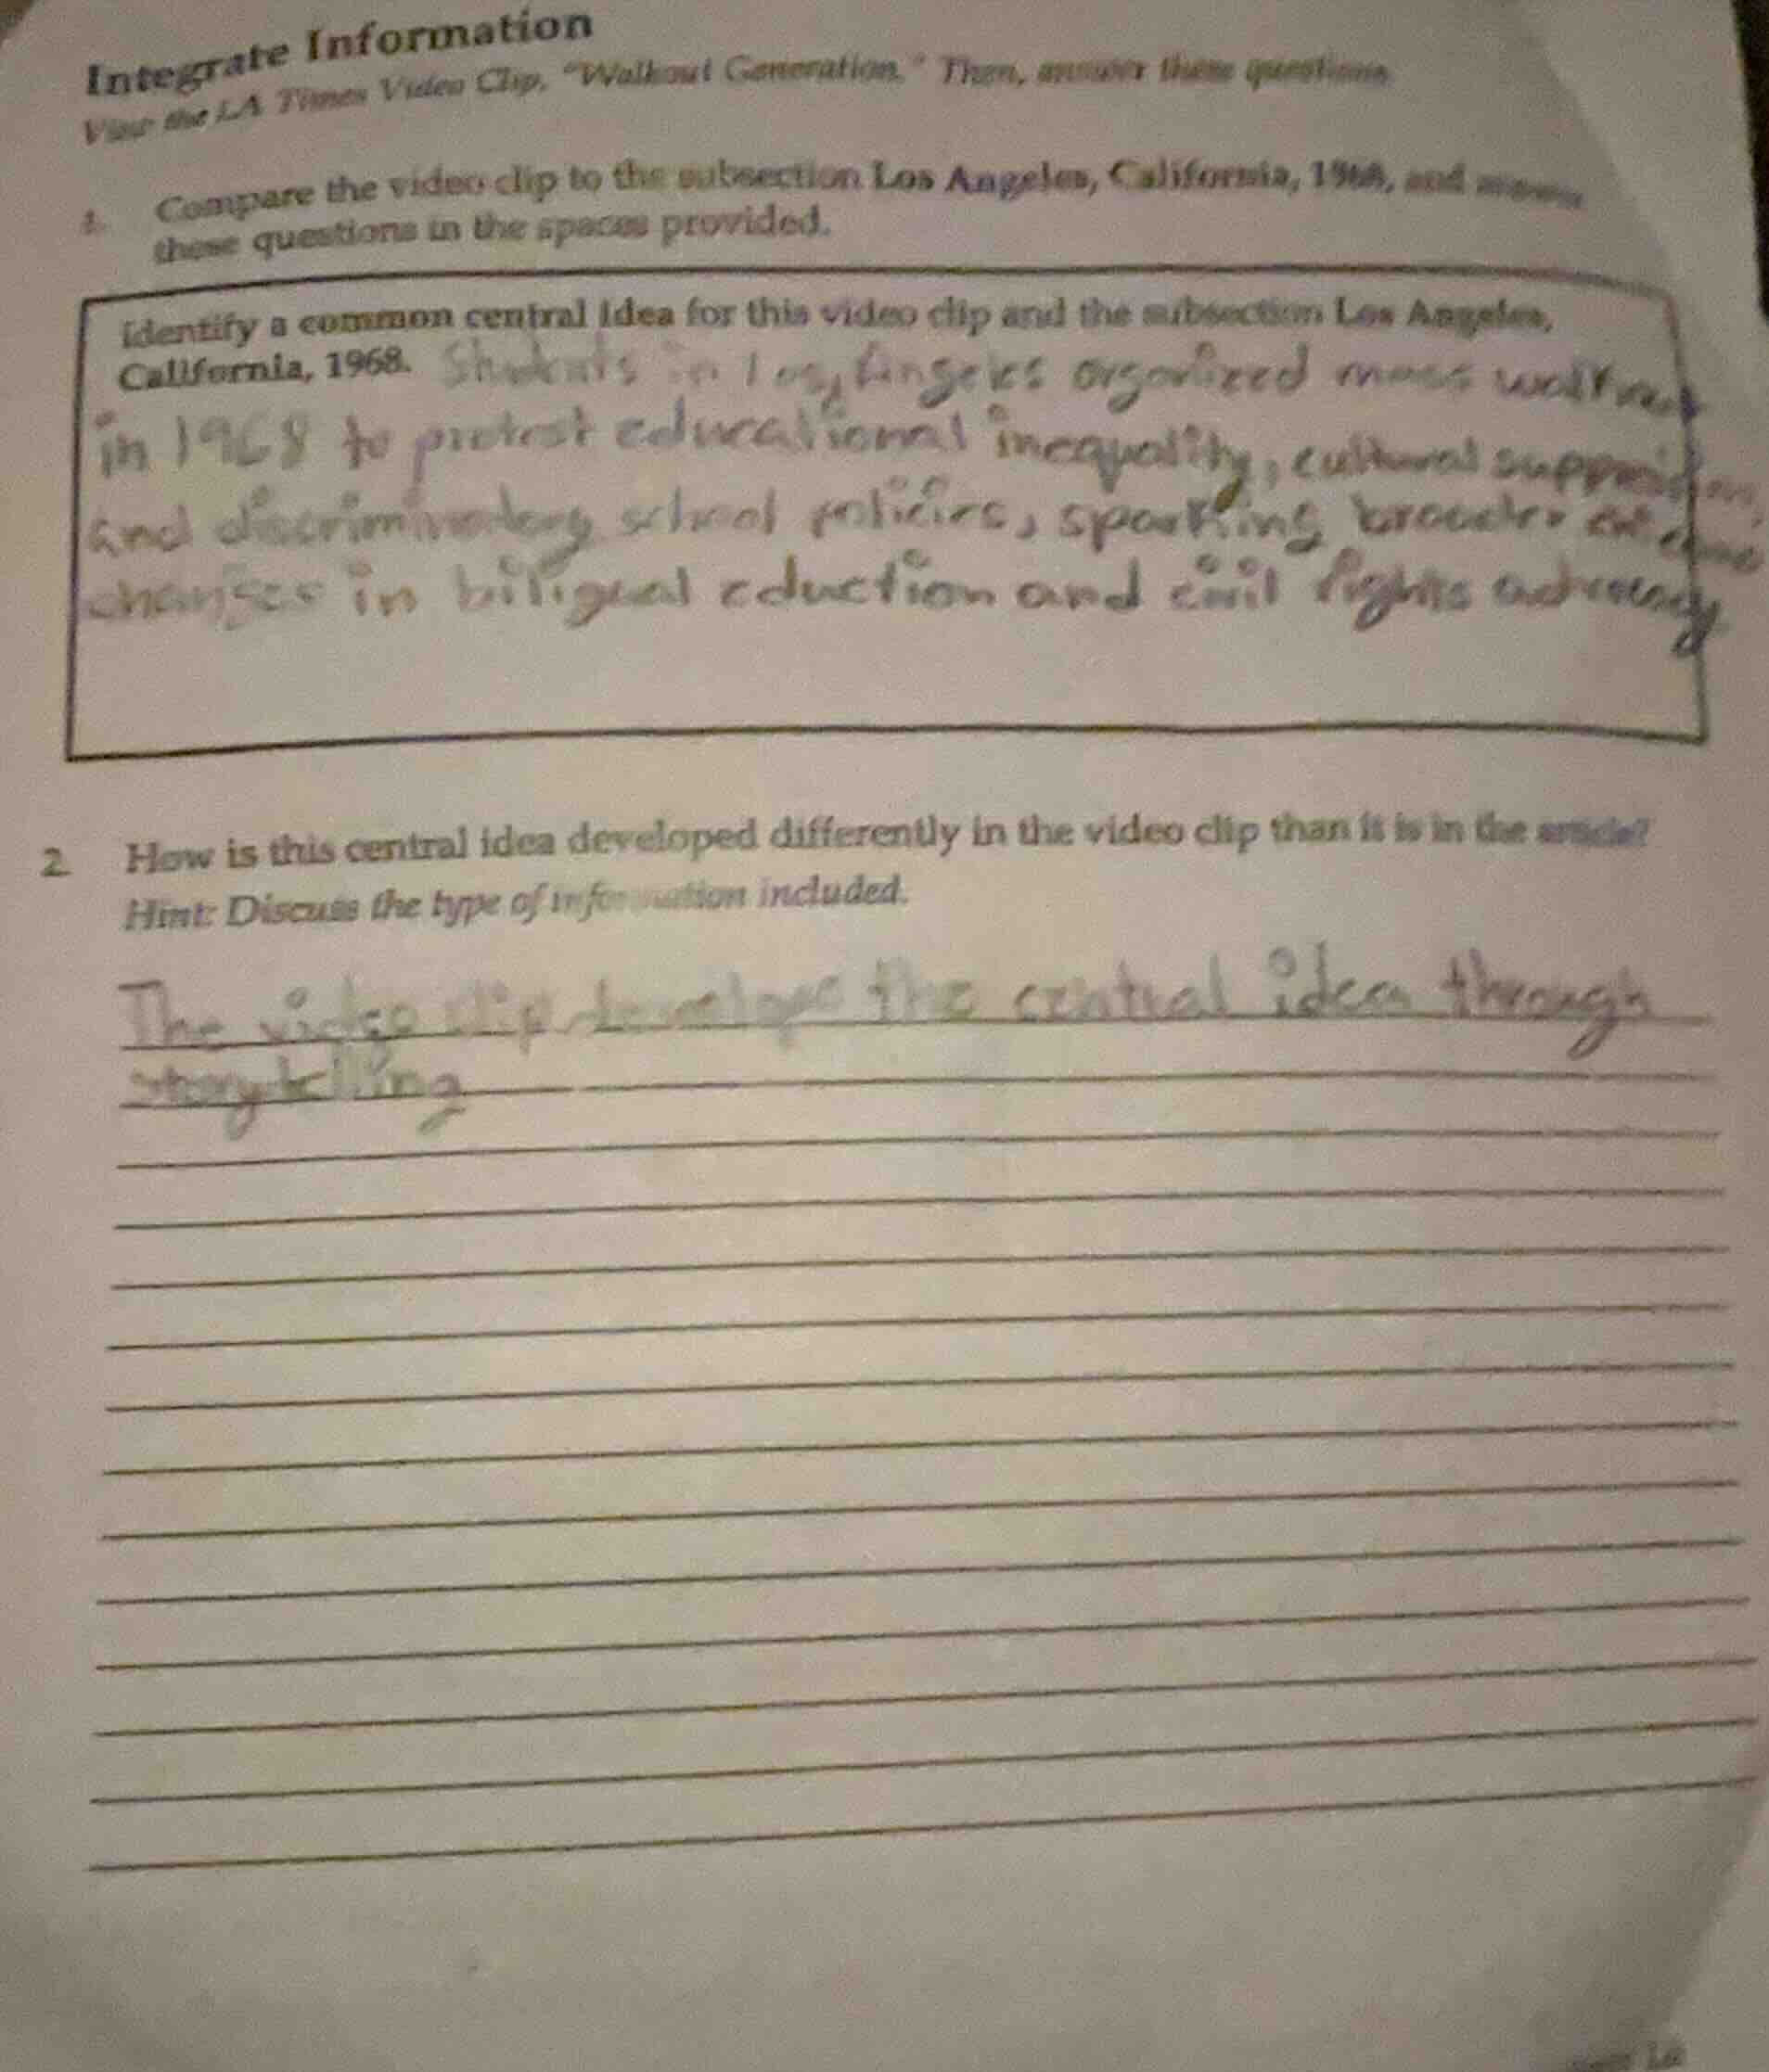 Integrate Information
View the LA Times Video Clip, "Walkout Generation." Then, answer these questions.
1. Compare the video clip to the subsection Los Angeles, California, 1968, and answer
these questions in the spaces provided.
Identify a common central idea for this video clip and the subsection Los Angeles,
California, 1968. Students in Los Angeles organized mass walkouts
in 1968 to protest educational inequality, cultural suppression,
and discriminatory school policies, sparking broader
changes in biligual eduction and civil rights advocacy
2 How is this central idea developed differently in the video clip than it is in the article?
Hint: Discuss the type of information included.
The video clip develops the central idea through
storytelling